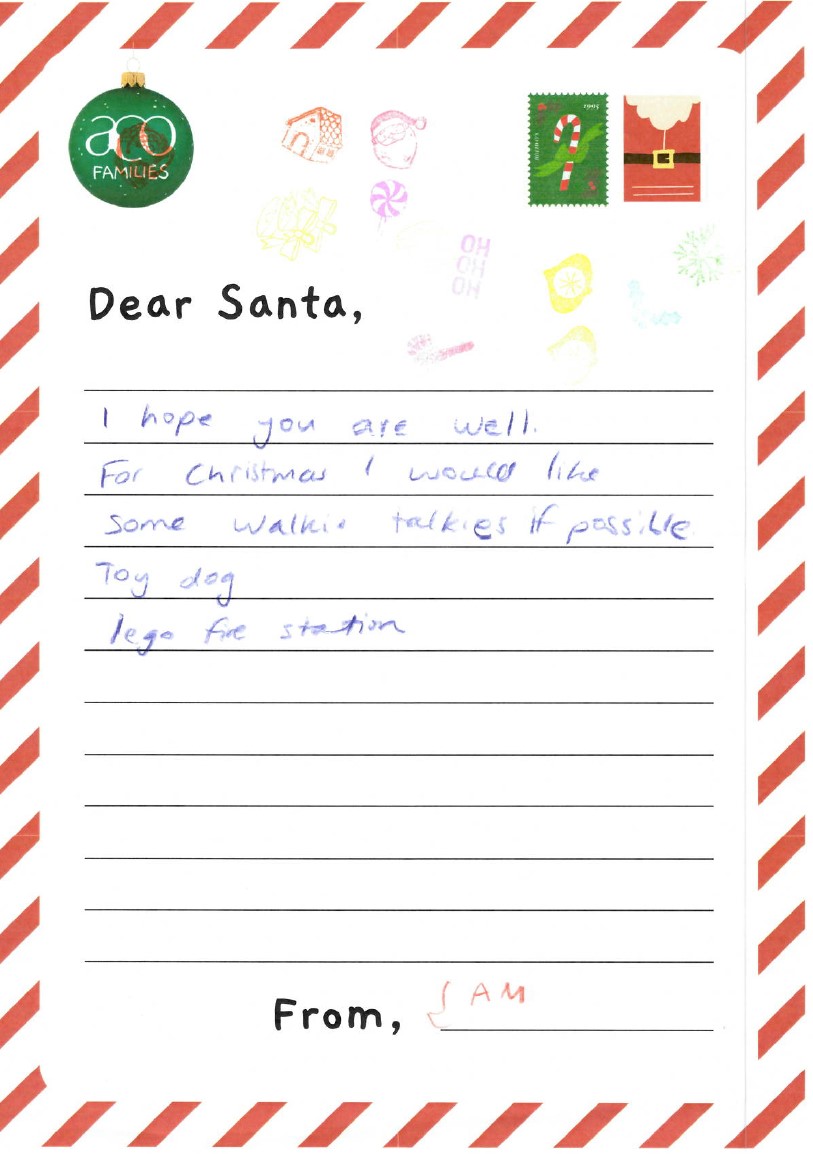 aco
FAMILIES
1905
OH
OH
OH
Dear Santa,
I hope you are well.
For Christmas I would like
some walkie talkies if possible
Toy dog
lego fire station
From, SAM